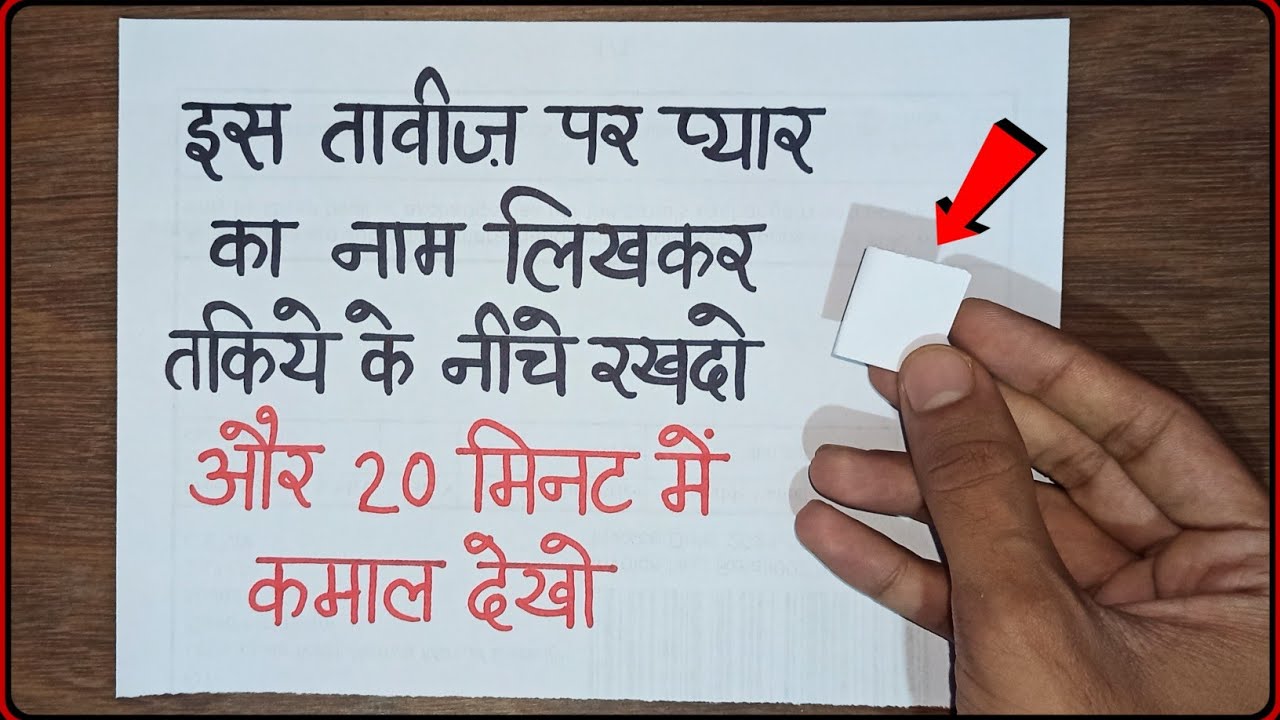 इस तावीज़ पर प्यार
का नाम लिखकर
तकिये के नीचे रखदो
और 20 मिनट में
कमाल देखो